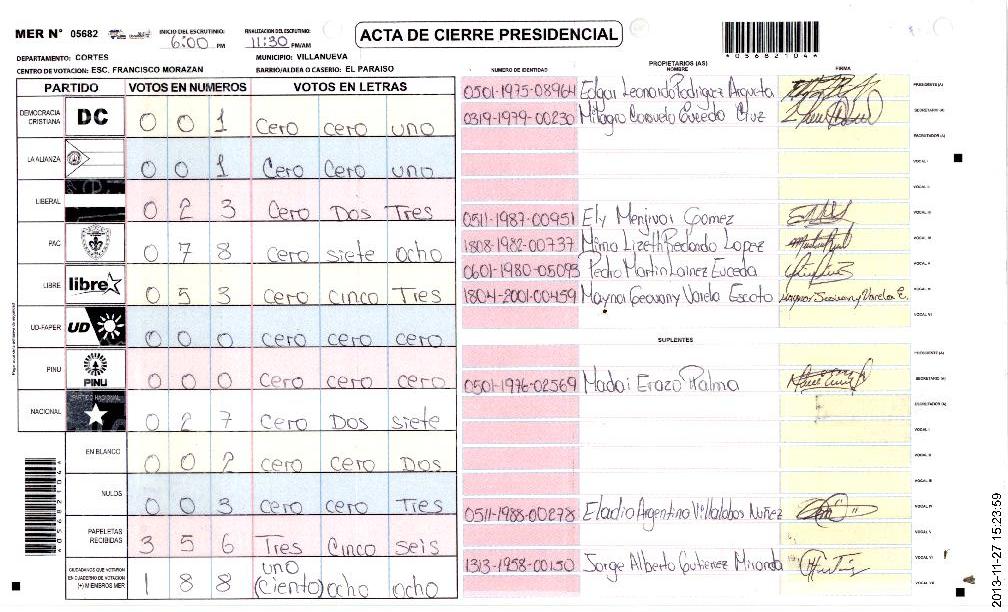 MER N° 05682
INICIO DEL ESCRUTINIO:
6:00 PM
FINALIZACION DEL ESCRUTINIO:
11:30 PM/AM
ACTA DE CIERRE PRESIDENCIAL
*05682104*
DEPARTAMENTO: CORTES
MUNICIPIO: VILLANUEVA
CENTRO DE VOTACION: ESC. FRANCISCO MORAZAN
BARRIO/ALDEA O CASERIO: EL PARAISO
PARTIDO VOTOS EN NUMEROS VOTOS EN LETRAS
DEMOCRACIA CRISTIANA DC 0 0 1 Cero cero uno
LA ALIANZA 0 0 1 Cero Cero uno
LIBERAL 0 2 3 Cero Dos Tres
PAC 0 7 8 Cero siete ocho
LIBRE libre 0 5 3 Cero Cinco Tres
UD-FAPER UD 0 0 0 cero cero cero
PINU PINU 0 0 0 cero cero cero
NACIONAL PARTIDO NACIONAL 0 2 7 Cero Dos siete
EN BLANCO 0 0 2 cero cero Dos
NULOS 0 0 3 cero cero Tres
PAPELETAS RECIBIDAS 3 5 6 Tres Cinco seis
CIUDADANOS QUE VOTARON EN CUADERNO DE VOTACION (+) MIEMBROS MER 1 8 8 uno (Ciento) ocho ocho
*05682104*
PROPIETARIOS (AS)
NUMERO DE IDENTIDAD NOMBRE FIRMA
0501-1975-08964 Edgar Leonardo Rodriguez Argueta PRESIDENTE (A)
0319-1979-00230 Milagro Consuelo Euceda Cruz SECRETARIO (A)
ESCRUTADOR (A)
VOCAL I
VOCAL II
0511-1987-00951 Ely Menjivar Gomez VOCAL III
1808-1982-00737 Mirna Lizeth Redondo Lopez VOCAL IV
0601-1980-05093 Pedro Martin Lainez Euceda VOCAL V
1804-2001-00459 Maynor Geovanny Varela Escoto Maynor Geovanny Varela E.
SUPLENTES
PRESIDENTE (A)
0501-1976-02569 Madai Erazo Palma SECRETARIO (A)
ESCRUTADOR (A)
VOCAL I
VOCAL II
VOCAL III
0511-1988-00278 Eladia Argentina Villalobos Nuñez VOCAL IV
VOCAL V
1313-1958-00150 Jorge Alberto Gutierrez Miranda VOCAL VI
2013-11-27 15:23:59